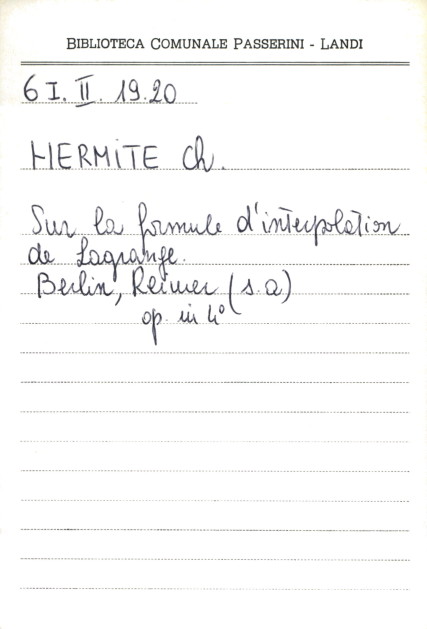 BIBLIOTECA COMUNALE PASSERINI - LANDI
6 I. II. 19.20
HERMITE Ch.
Sur la formule d'interpolation
de Lagrange.
Berlin, Reimer (s.a)
op. in 4°